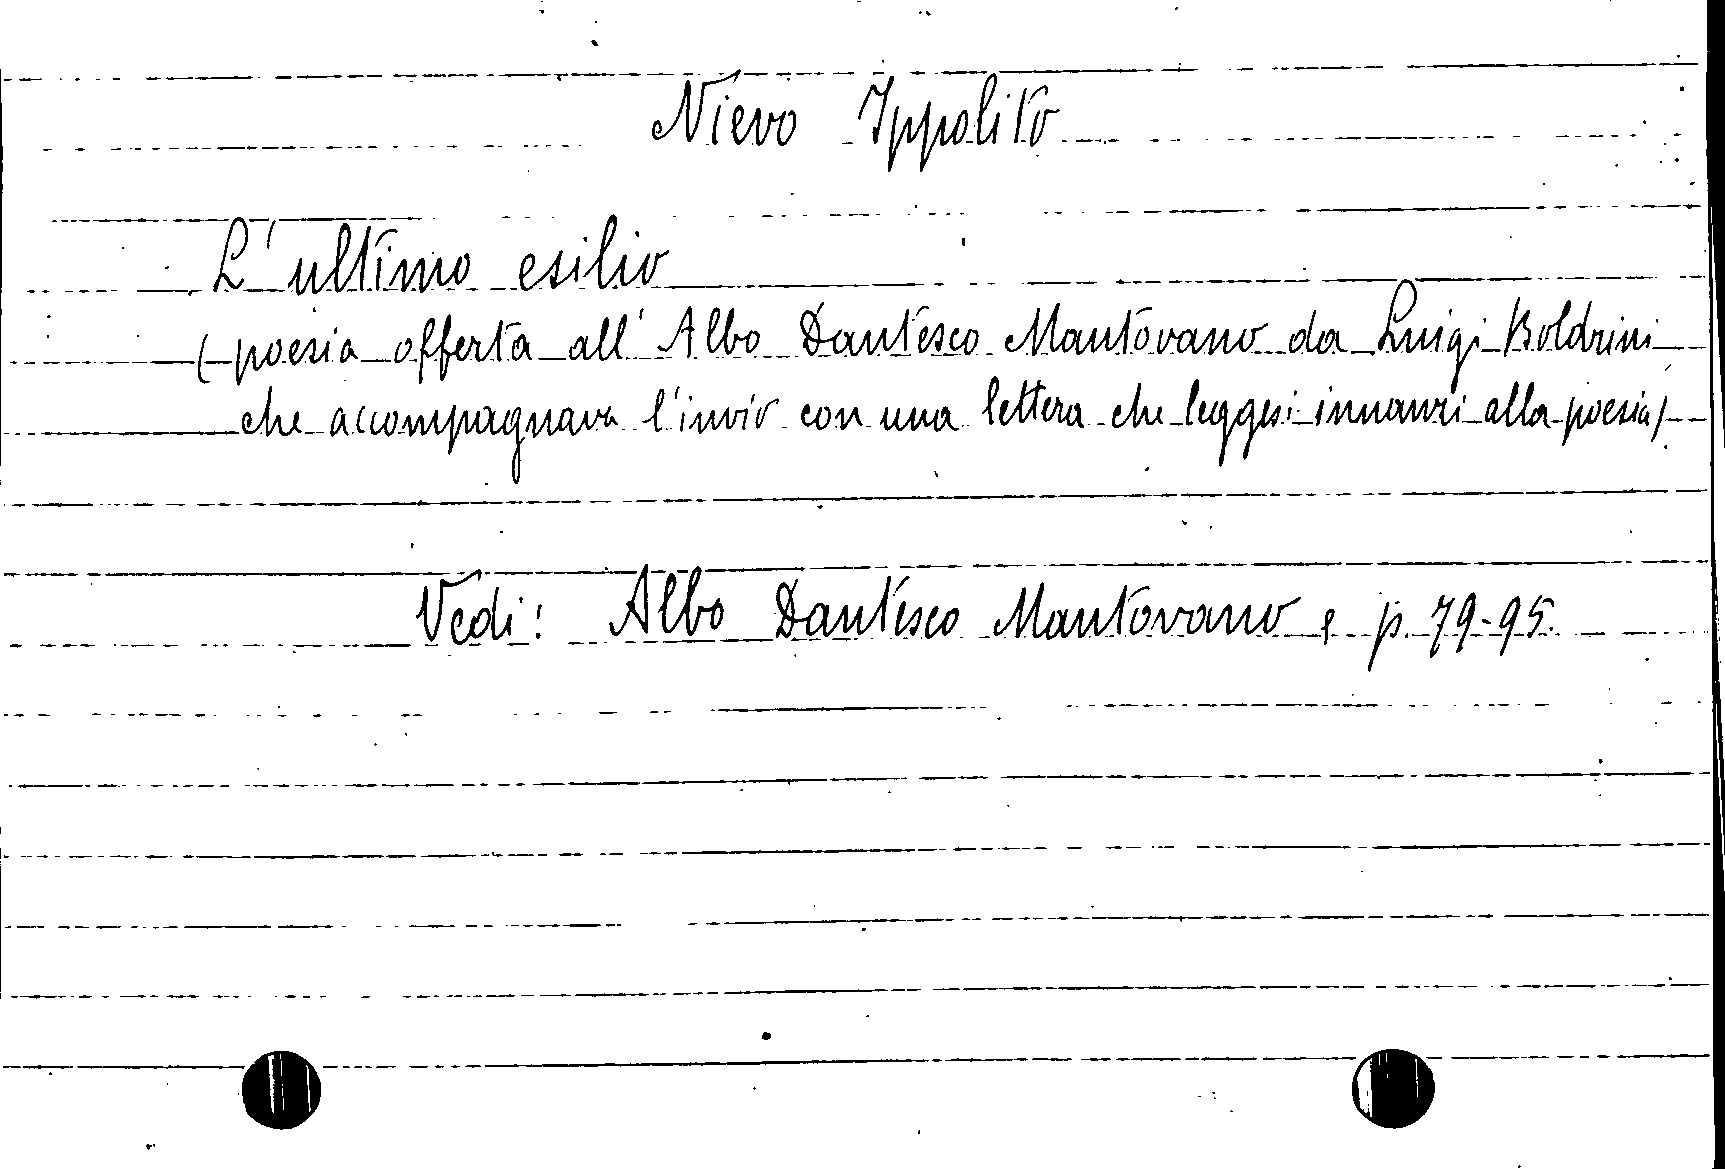 Nievo Ippolito
L'ultimo esilio
(poesia offerta all'Albo Dantesco Mantovano da Luigi Boldrini
che accompagnava l'invio con una lettera che leggesi innanzi alla poesia)
Vedi: Albo Dantesco Mantovano, p. 79-95.